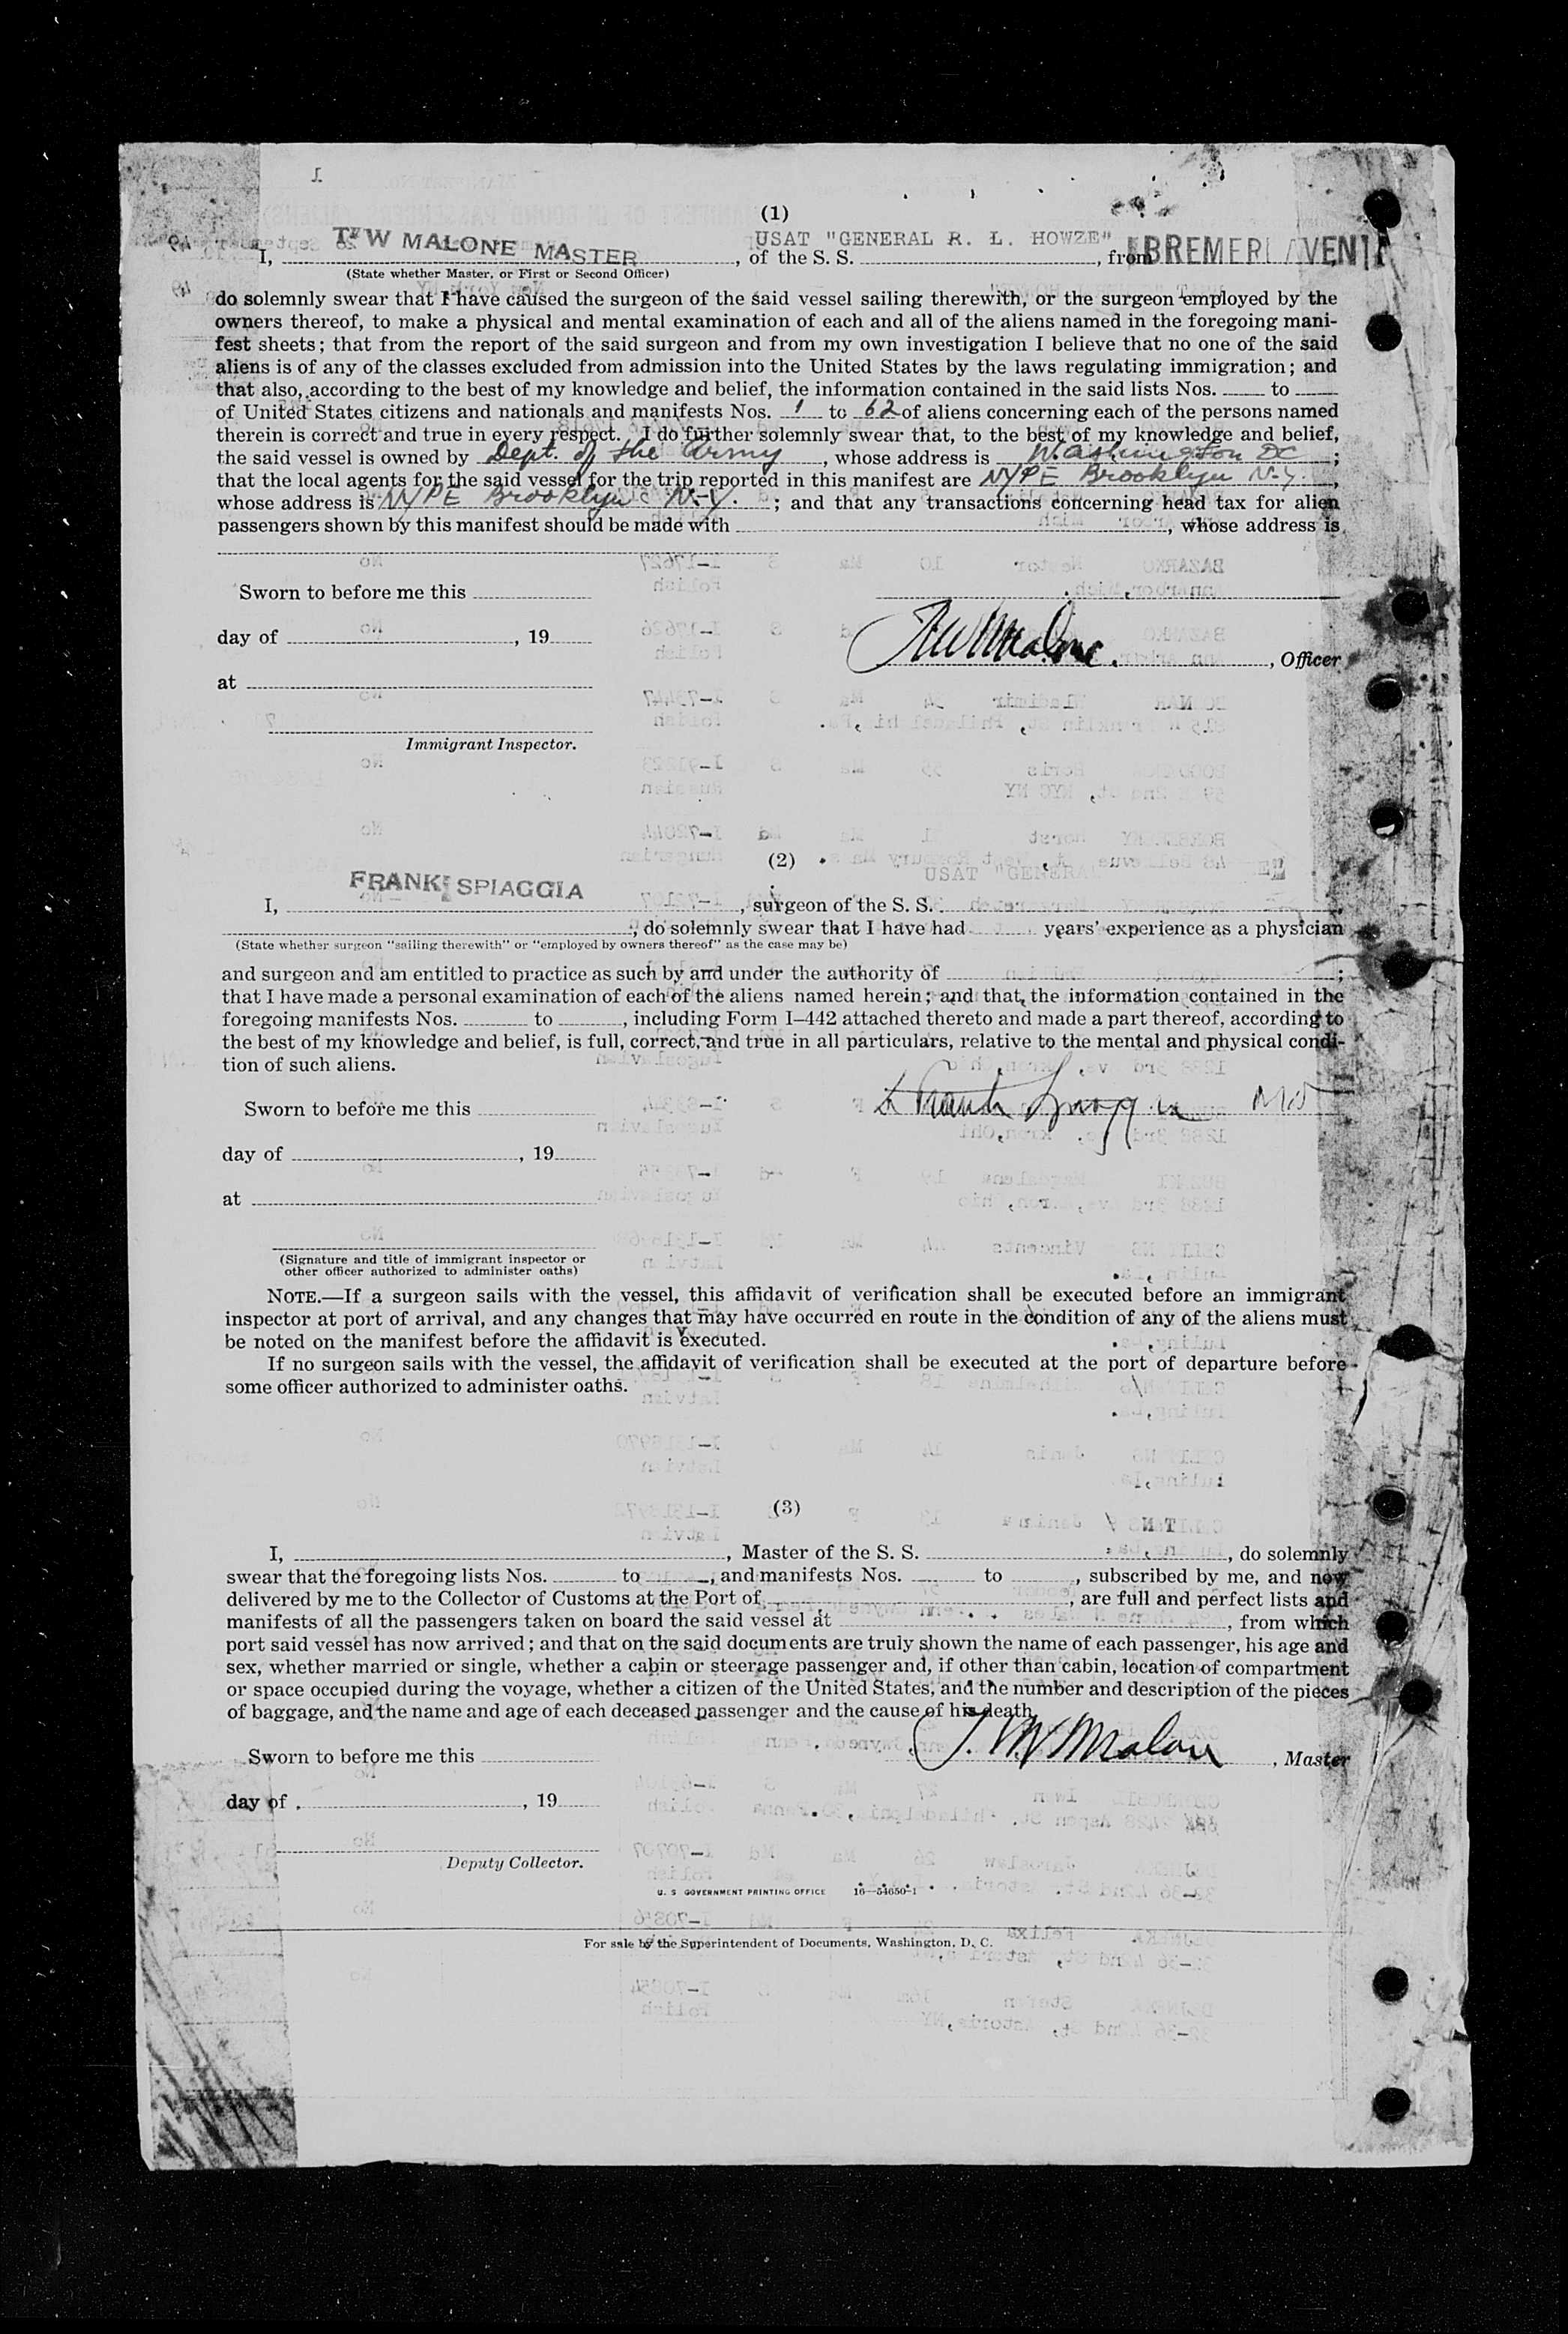 (1)
I, T. W MALONE MASTER, of the S. S. USAT "GENERAL R. L. HOWZE", from BREMERHAVEN
(State whether Master, or First or Second Officer)
do solemnly swear that I have caused the surgeon of the said vessel sailing therewith, or the surgeon employed by the
owners thereof, to make a physical and mental examination of each and all of the aliens named in the foregoing mani-
fest sheets; that from the report of the said surgeon and from my own investigation I believe that no one of the said
aliens is of any of the classes excluded from admission into the United States by the laws regulating immigration; and
that also, according to the best of my knowledge and belief, the information contained in the said lists Nos. to
of United States citizens and nationals and manifests Nos. 1 to 62 of aliens concerning each of the persons named
therein is correct and true in every respect. I do further solemnly swear that, to the best of my knowledge and belief,
the said vessel is owned by Dept. of the Army, whose address is Washington DC;
that the local agents for the said vessel for the trip reported in this manifest are NYPE Brooklyn N-Y.,
whose address is NYPE Brooklyn N-Y.; and that any transactions concerning head tax for alien
passengers shown by this manifest should be made with , whose address is
Sworn to before me this
day of , 19
T W Malone. , Officer
at
Immigrant Inspector.
(2)
USAT "GENERAL
I, FRANK SPIAGGIA, surgeon of the S. S.
, do solemnly swear that I have had years' experience as a physician
(State whether surgeon "sailing therewith" or "employed by owners thereof" as the case may be)
and surgeon and am entitled to practice as such by and under the authority of ;
that I have made a personal examination of each of the aliens named herein; and that the information contained in the
foregoing manifests Nos. to , including Form I–442 attached thereto and made a part thereof, according to
the best of my knowledge and belief, is full, correct, and true in all particulars, relative to the mental and physical condi-
tion of such aliens.
Sworn to before me this
Frank Spiaggia MD
day of , 19
at
(Signature and title of immigrant inspector or
other officer authorized to administer oaths)
NOTE.—If a surgeon sails with the vessel, this affidavit of verification shall be executed before an immigrant
inspector at port of arrival, and any changes that may have occurred en route in the condition of any of the aliens must
be noted on the manifest before the affidavit is executed.
If no surgeon sails with the vessel, the affidavit of verification shall be executed at the port of departure before
some officer authorized to administer oaths.
(3)
I, , Master of the S. S. , do solemnly
swear that the foregoing lists Nos. to , and manifests Nos. to , subscribed by me, and now
delivered by me to the Collector of Customs at the Port of , are full and perfect lists and
manifests of all the passengers taken on board the said vessel at , from which
port said vessel has now arrived; and that on the said documents are truly shown the name of each passenger, his age and
sex, whether married or single, whether a cabin or steerage passenger and, if other than cabin, location of compartment
or space occupied during the voyage, whether a citizen of the United States, and the number and description of the pieces
of baggage, and the name and age of each deceased passenger and the cause of his death.
Sworn to before me this
T. W Malone , Master
day of , 19
Deputy Collector.
U. S GOVERNMENT PRINTING OFFICE 16—54650-1
For sale by the Superintendent of Documents, Washington, D. C.